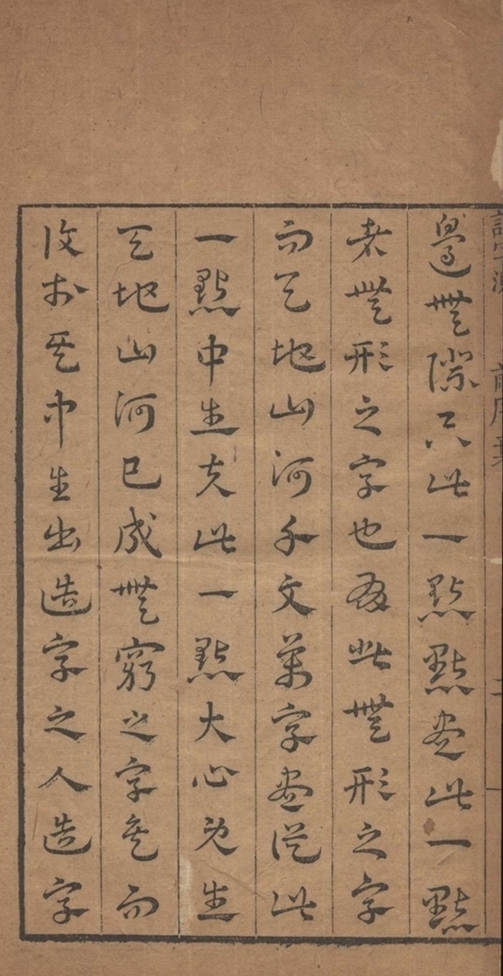 邊無際只此一點點盡此一點
者無形之字也致此無形之字
而天地山河千文萬字盡從此
一點中生矣此一點大心既生
天地山河已成無窮之字矣而
後於其中生出造字之人造字